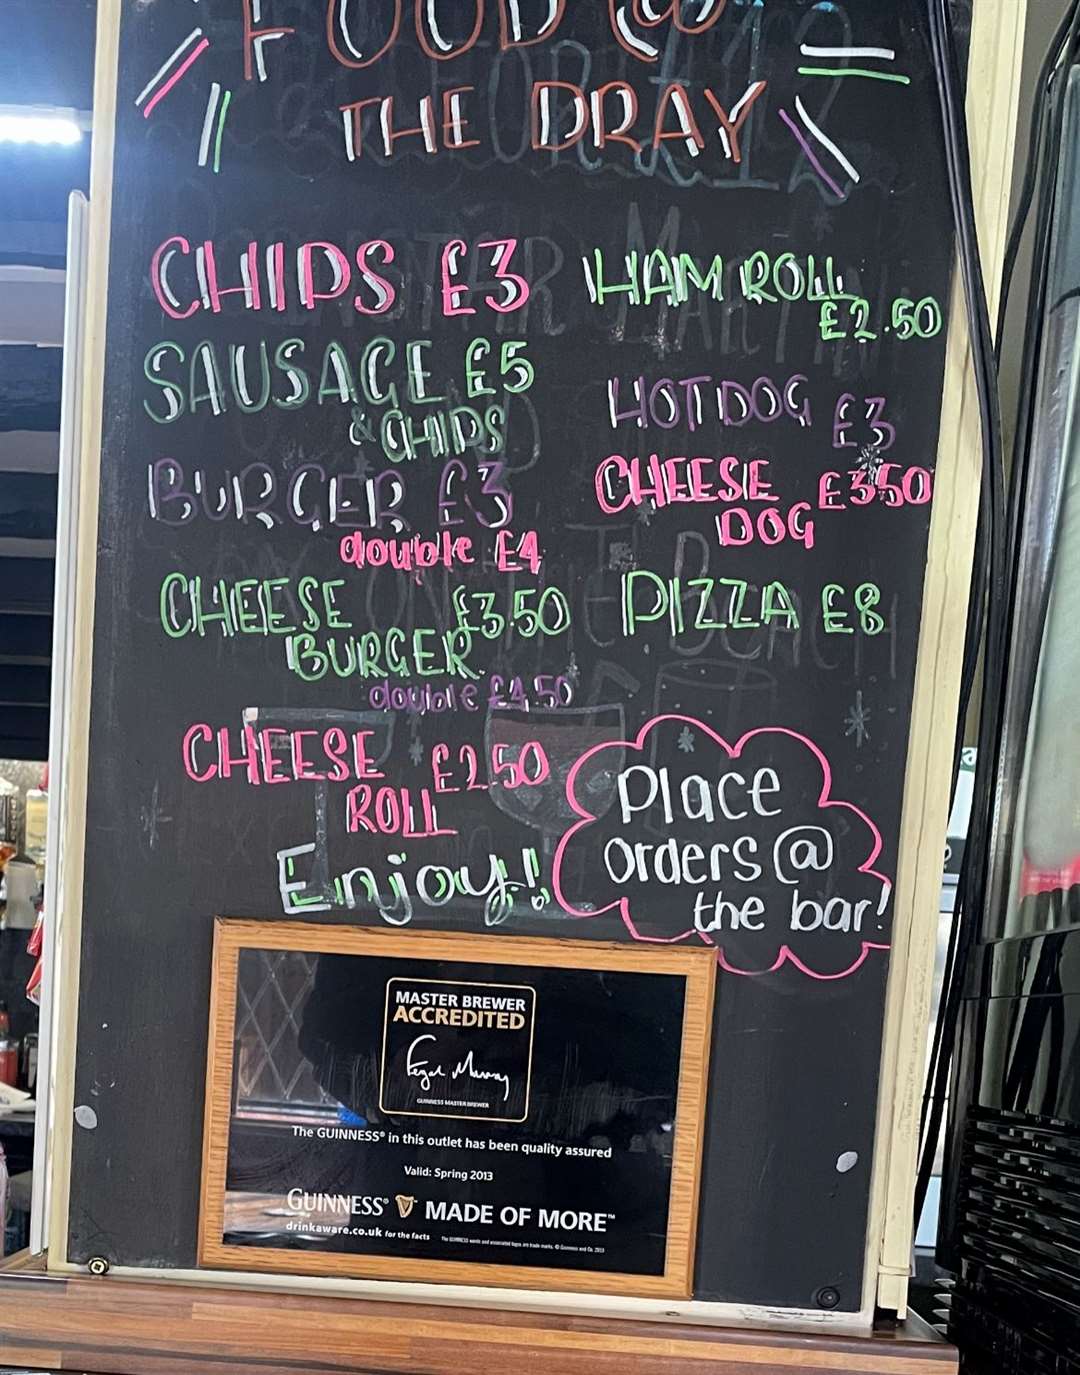 FOOD @
THE DRAY
CHIPS £3
SAUSAGE £5
& CHIPS
BURGER £3
double £4
CHEESE £3.50
BURGER
double £4.50
CHEESE £2.50
ROLL
Enjoy!
HAM ROLL
£2.50
HOTDOG £3
CHEESE £3.50
DOG
PIZZA £8
Place
orders @
the bar!
MASTER BREWER
ACCREDITED
Fergal Murray
GUINNESS MASTER BREWER
The GUINNESS® in this outlet has been quality assured
Valid: Spring 2013
GUINNESS® MADE OF MORE™
drinkaware.co.uk for the facts The GUINNESS words and associated logos are trade marks. © Guinness and Co. 2013